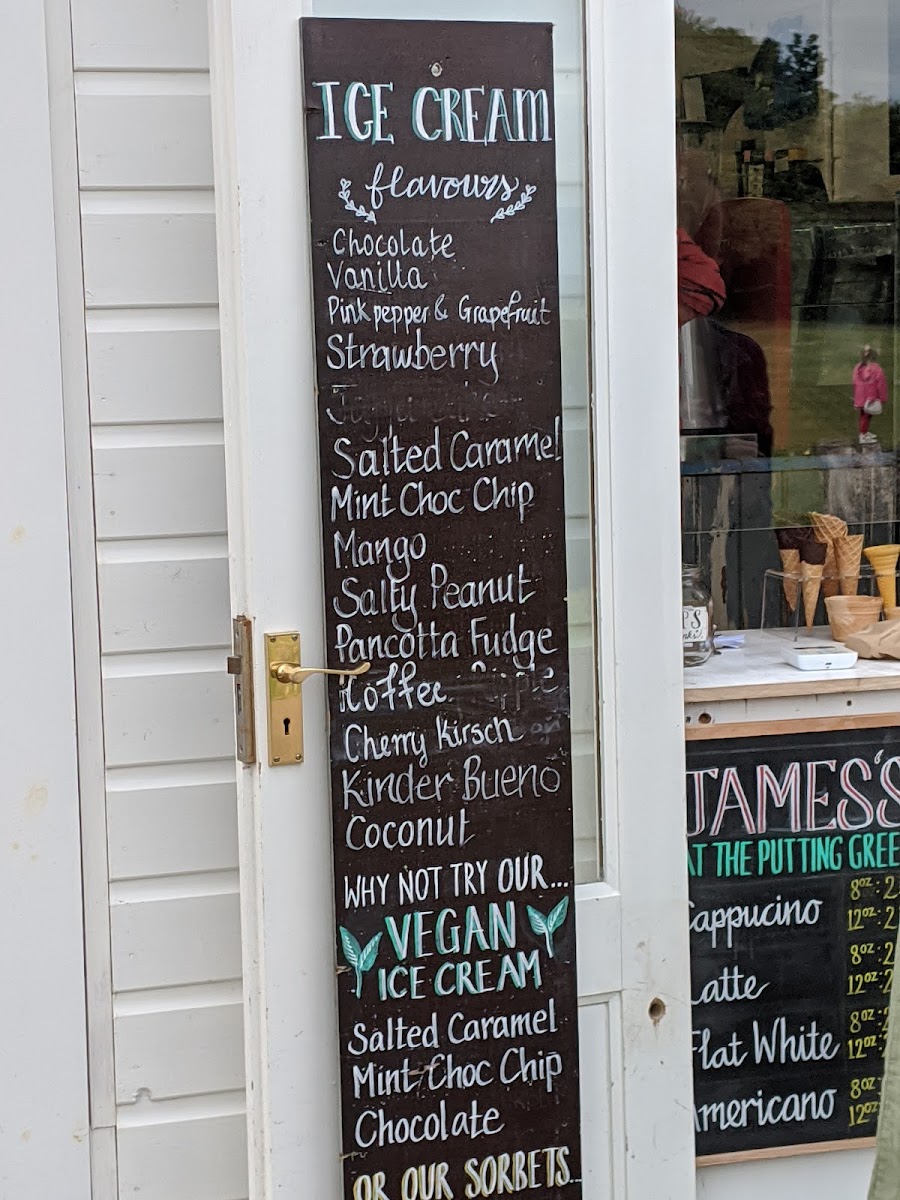 ICE CREAM
flavours
Chocolate
Vanilla
Pink pepper & Grapefruit
Strawberry
Salted Caramel
Mint Choc Chip
Mango
Salty Peanut
Pancotta Fudge
Coffee
Cherry Kirsch
Kinder Bueno
Coconut
WHY NOT TRY OUR...
VEGAN
ICE CREAM
Salted Caramel
Mint Choc Chip
Chocolate
OR OUR SORBETS...
JAMES'S
AT THE PUTTING GREE
appucino
8oz: 2
12oz: 2
Latte
8oz: 2
12oz: 2
Flat White
8oz: 2
12oz: 2
Americano
8oz: 2
12oz: